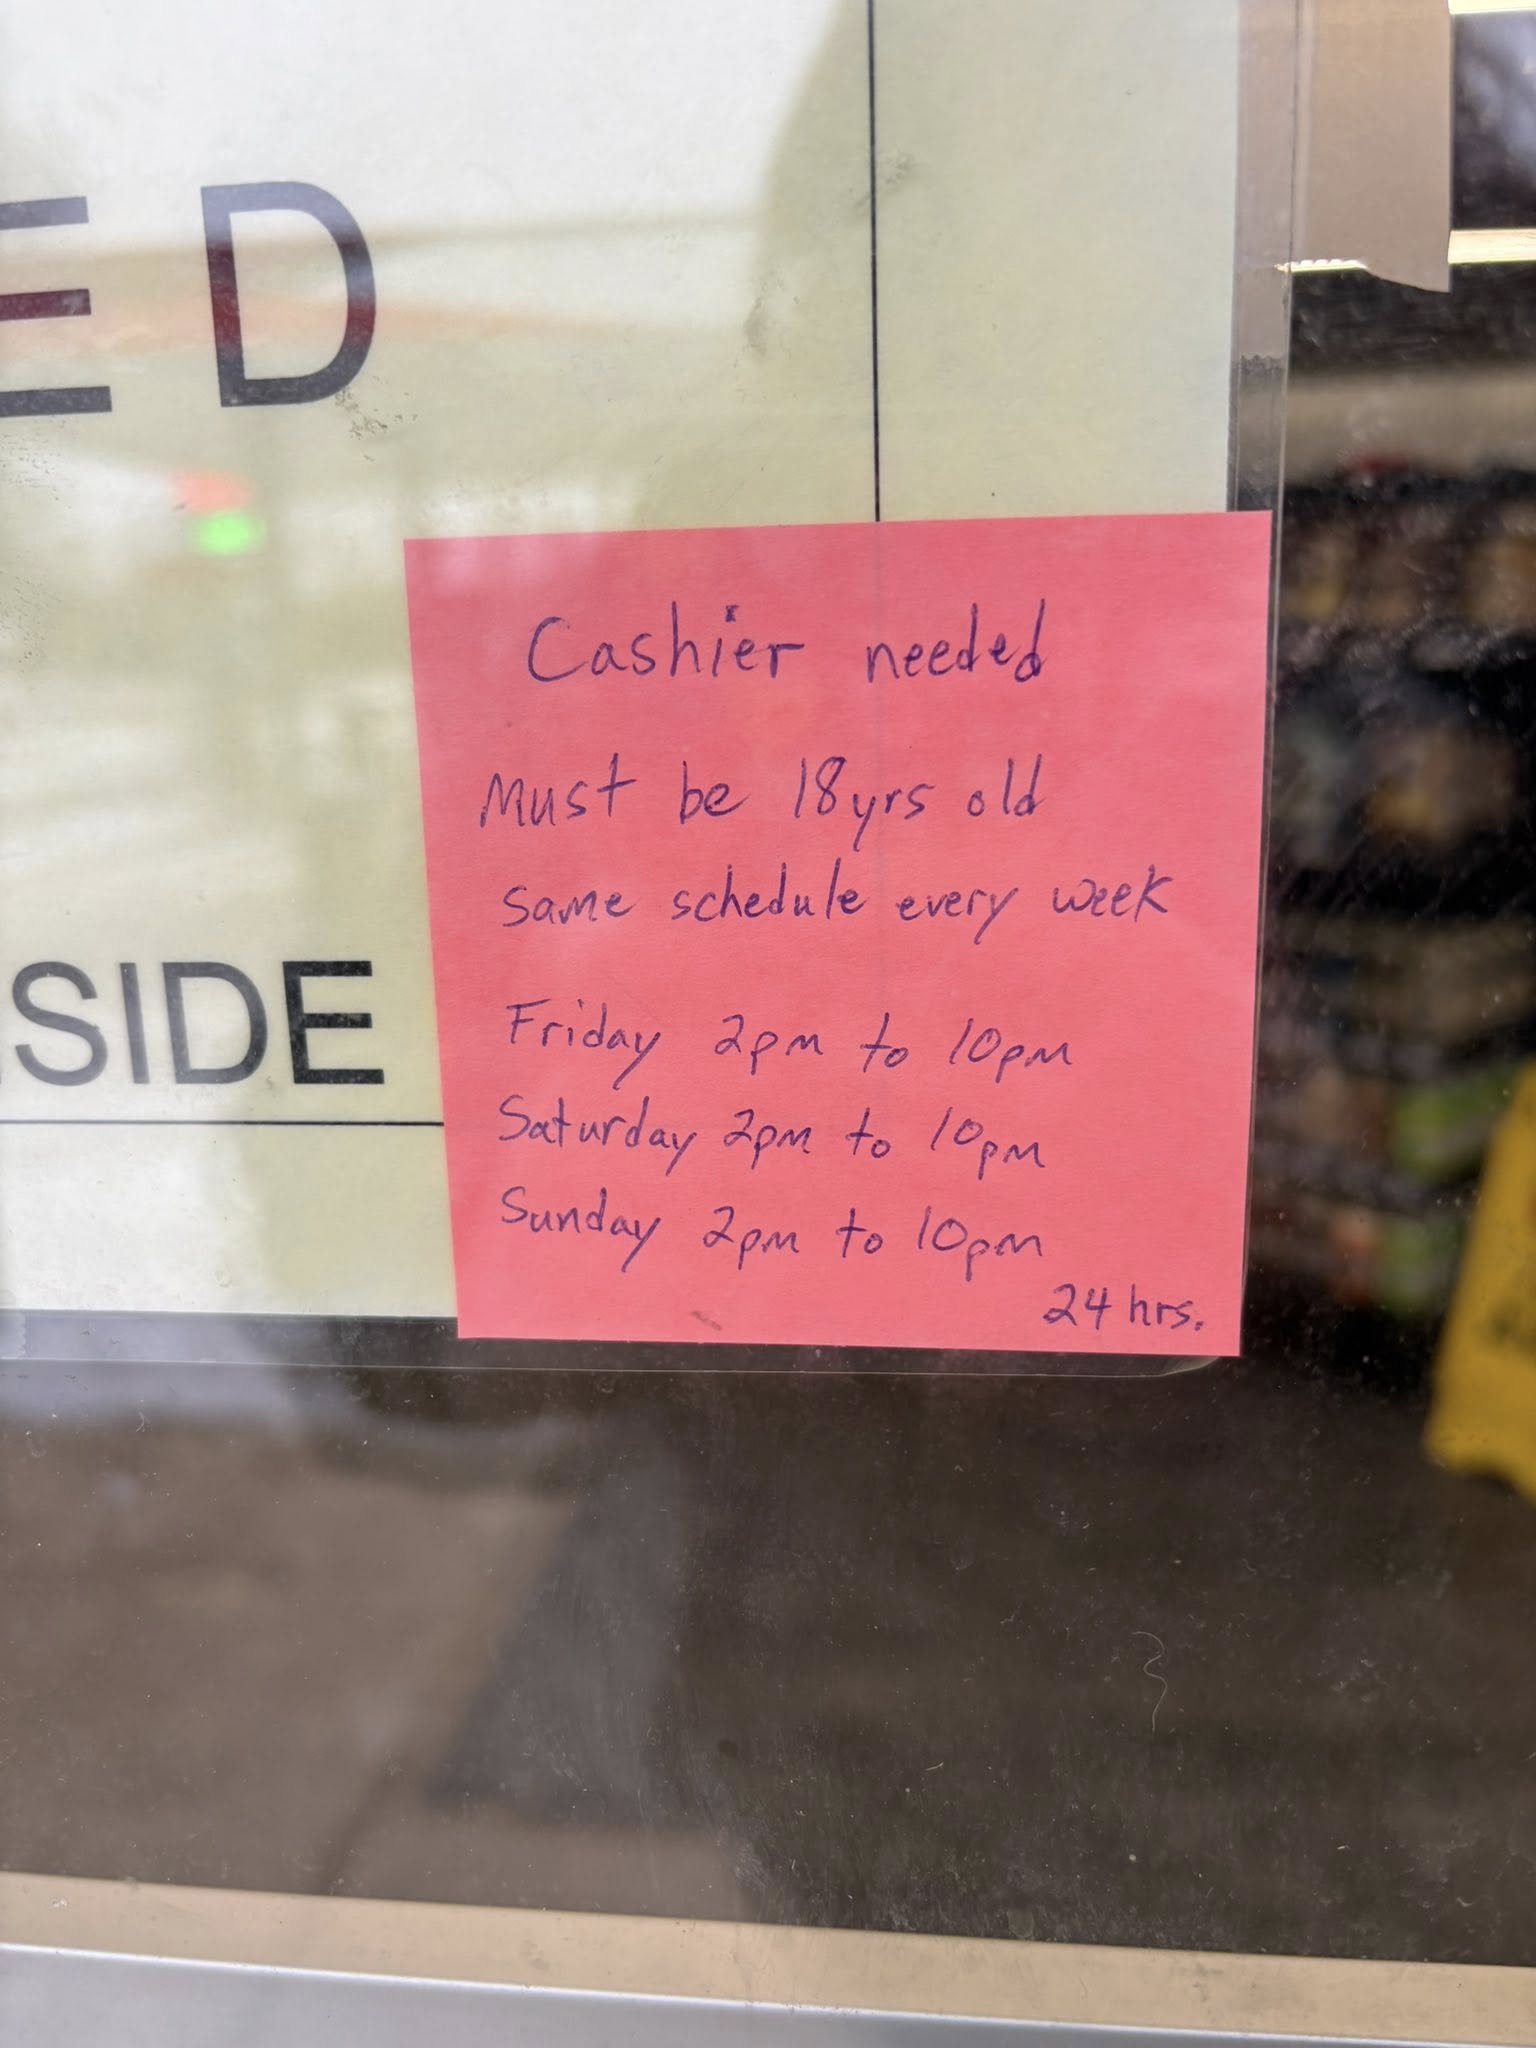 ED
SIDE
Cashier needed
Must be 18yrs old
same schedule every week
Friday 2pm to 10pm
Saturday 2pm to 10pm
Sunday 2pm to 10pm
24 hrs.